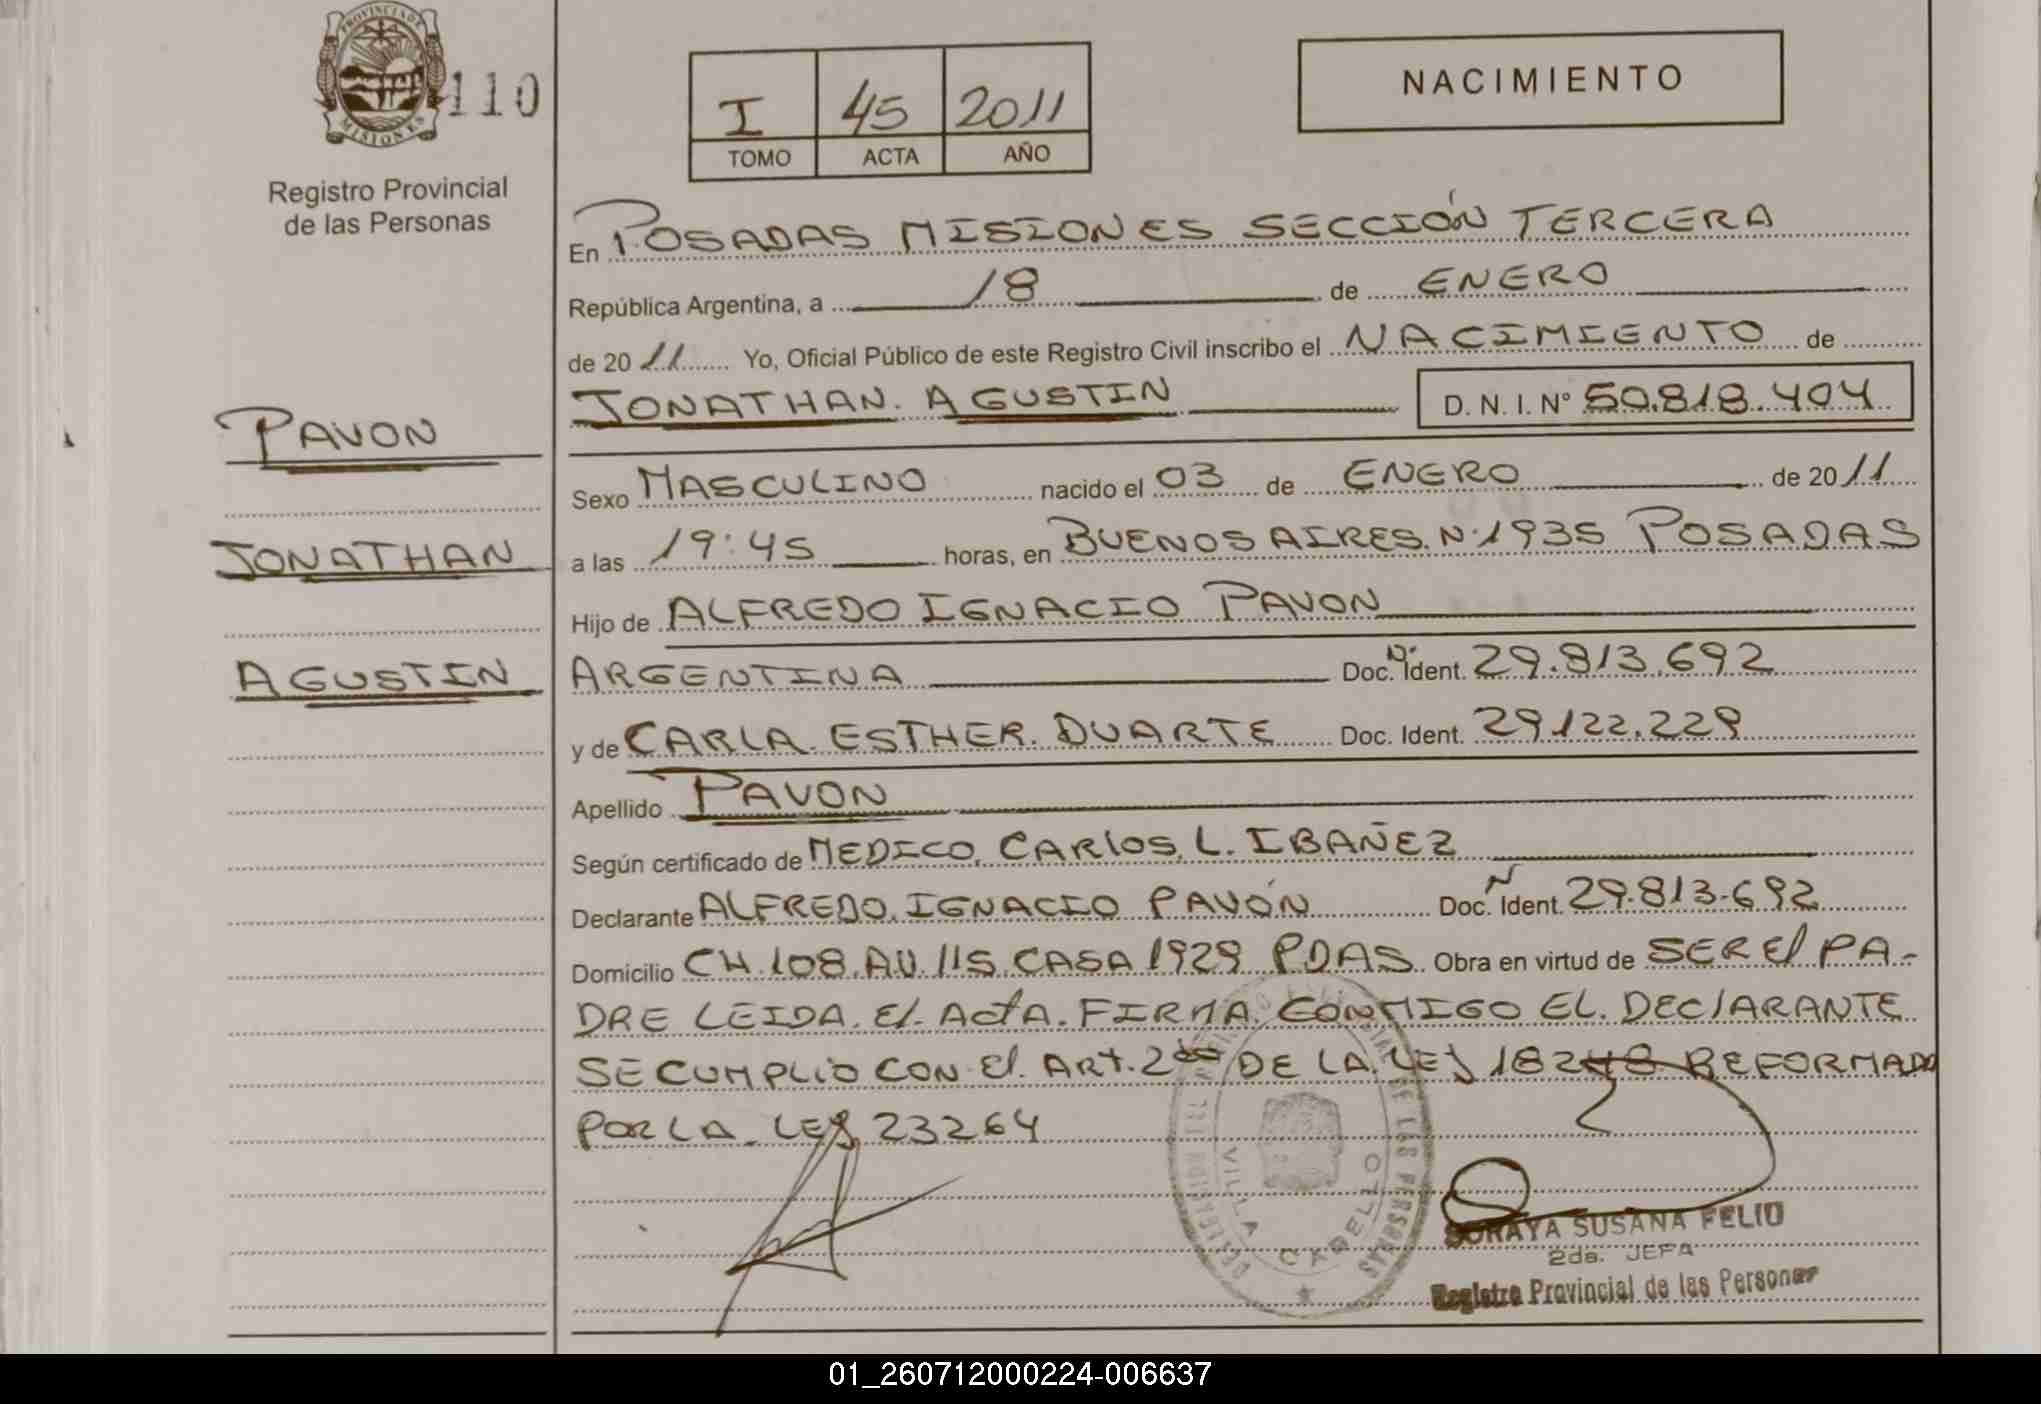 PROVINCIA DE
MISIONES
110
Registro Provincial
de las Personas
I 45 2011
TOMO ACTA AÑO
NACIMIENTO
En POSADAS MISIONES SECCIÓN TERCERA
República Argentina, a 18 de ENERO
de 2011 Yo, Oficial Público de este Registro Civil inscribo el NACIMIENTO de
JONATHAN AGUSTIN D. N. I. N° 50.818.404
PAVON
JONATHAN
AGUSTIN
Sexo MASCULINO nacido el 03 de ENERO de 2011
a las 19:45 horas, en BUENOS AIRES N. 1935 POSADAS
Hijo de ALFREDO IGNACIO PAVON
ARGENTINA Doc. N° Ident. 29.813.692
y de CARLA ESTHER DUARTE Doc. Ident. 29.122.229
Apellido PAVON
Según certificado de MEDICO, CARlOS, L. IBAÑEZ
Declarante ALFREDO IGNACIO PAVÓN Doc. N Ident. 29.813.692
Domicilio CH.108.AV.115.CASA 1929 PDAS Obra en virtud de SER El PA-
DRE LEIDA El ActA FIRMA CONMIGO EL DEClARANTE
SE CUMPLIO CON El ARt. 2do DE LA LEY 18248 REFORMADO
POR LA LEY 23264
VILLA CABELLO
DE LAS PERSONAS
SORAYA SUSANA FELIU
2da. JEFA
Registro Provincial de las Personas
01_260712000224-006637